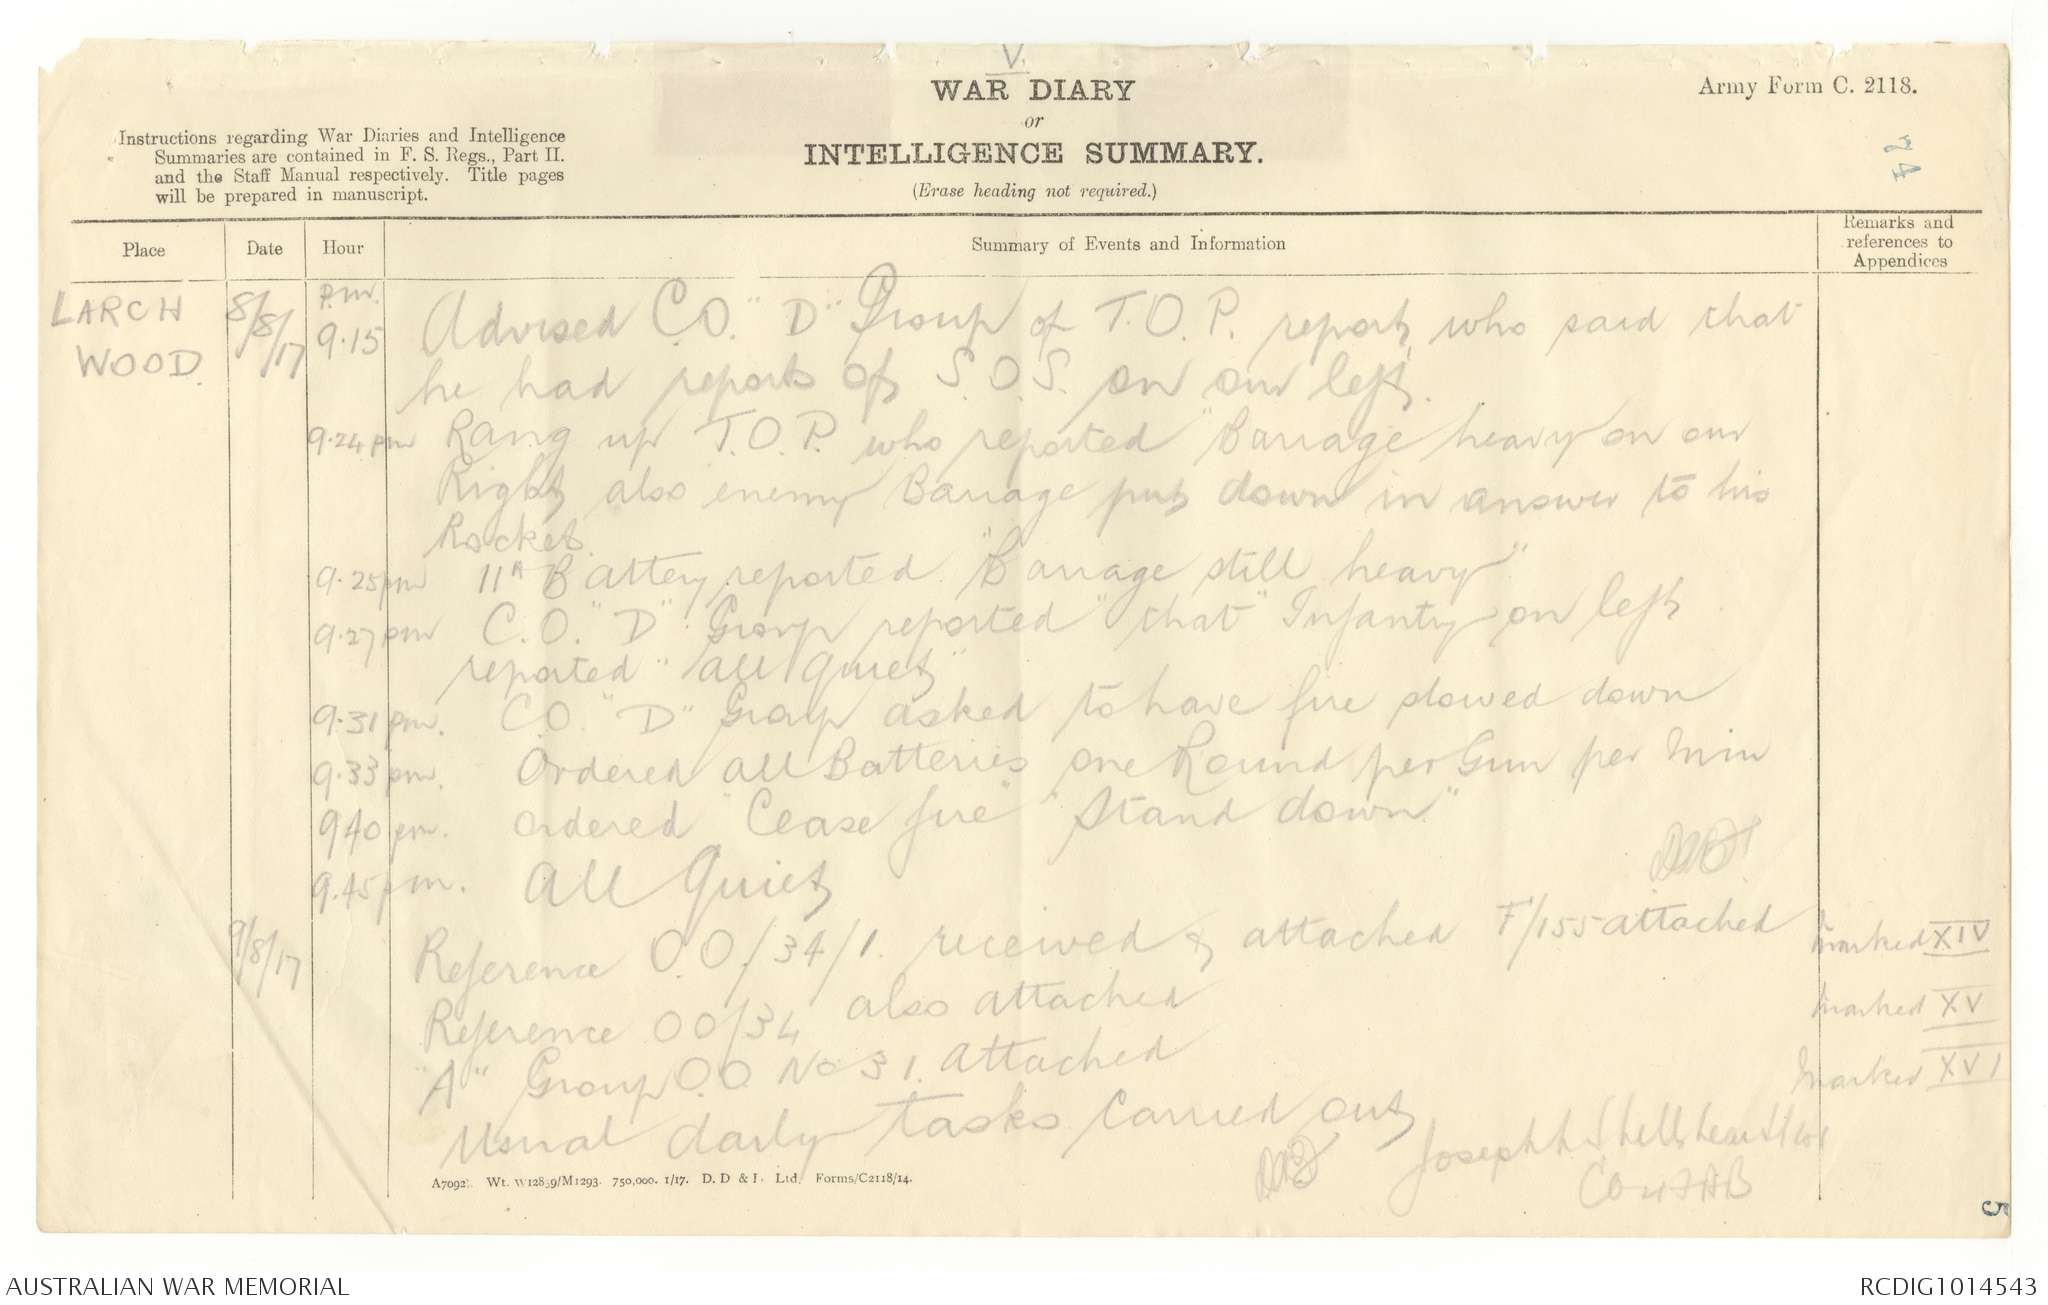 V.
WAR DIARY
or
INTELLIGENCE SUMMARY.
(Erase heading not required.)
Army Form C. 2118.
Instructions regarding War Diaries and Intelligence
Summaries are contained in F. S. Regs., Part II.
and the Staff Manual respectively. Title pages
will be prepared in manuscript.
Place Date Hour Summary of Events and Information Remarks and references to Appendices
LARCH WOOD. 8/8/17 p.m. 9.15 Advised C.O. "D" Group of T.O.P. report, who said that
he had reports of S.O.S. on our left.
9.24 pm Rang up T.O.P. who reported "Barrage heavy on our
Right also enemy Barrage put down in answer to his
Rocket.
9.25 pm 11A Battery reported "Barrage still heavy"
9.27 pm C.O. "D" Group reported "that" Infantry on left
reported "all quiet"
9.31 pm. C.O. "D" Group asked to have fire slowed down
9.33 pm. Ordered all Batteries one Round per Gun per Min
9.40 pm. ordered "Cease fire" "Stand down"
9.45 pm. All Quiet
9/8/17 Reference O.O./34/1. received & attached F/155 attached marked XIV
Reference OO/34 also attached marked XV
"A" Group O.O. No 31. attached marked XVI
Usual daily tasks carried out
Joseph L Shellshear Lt Col
A7092. Wt. W12859/M1293. 750,000. 1/17. D. D & L. Ltd. Forms/C2118/14.
5
AUSTRALIAN WAR MEMORIAL
RCDIG1014543